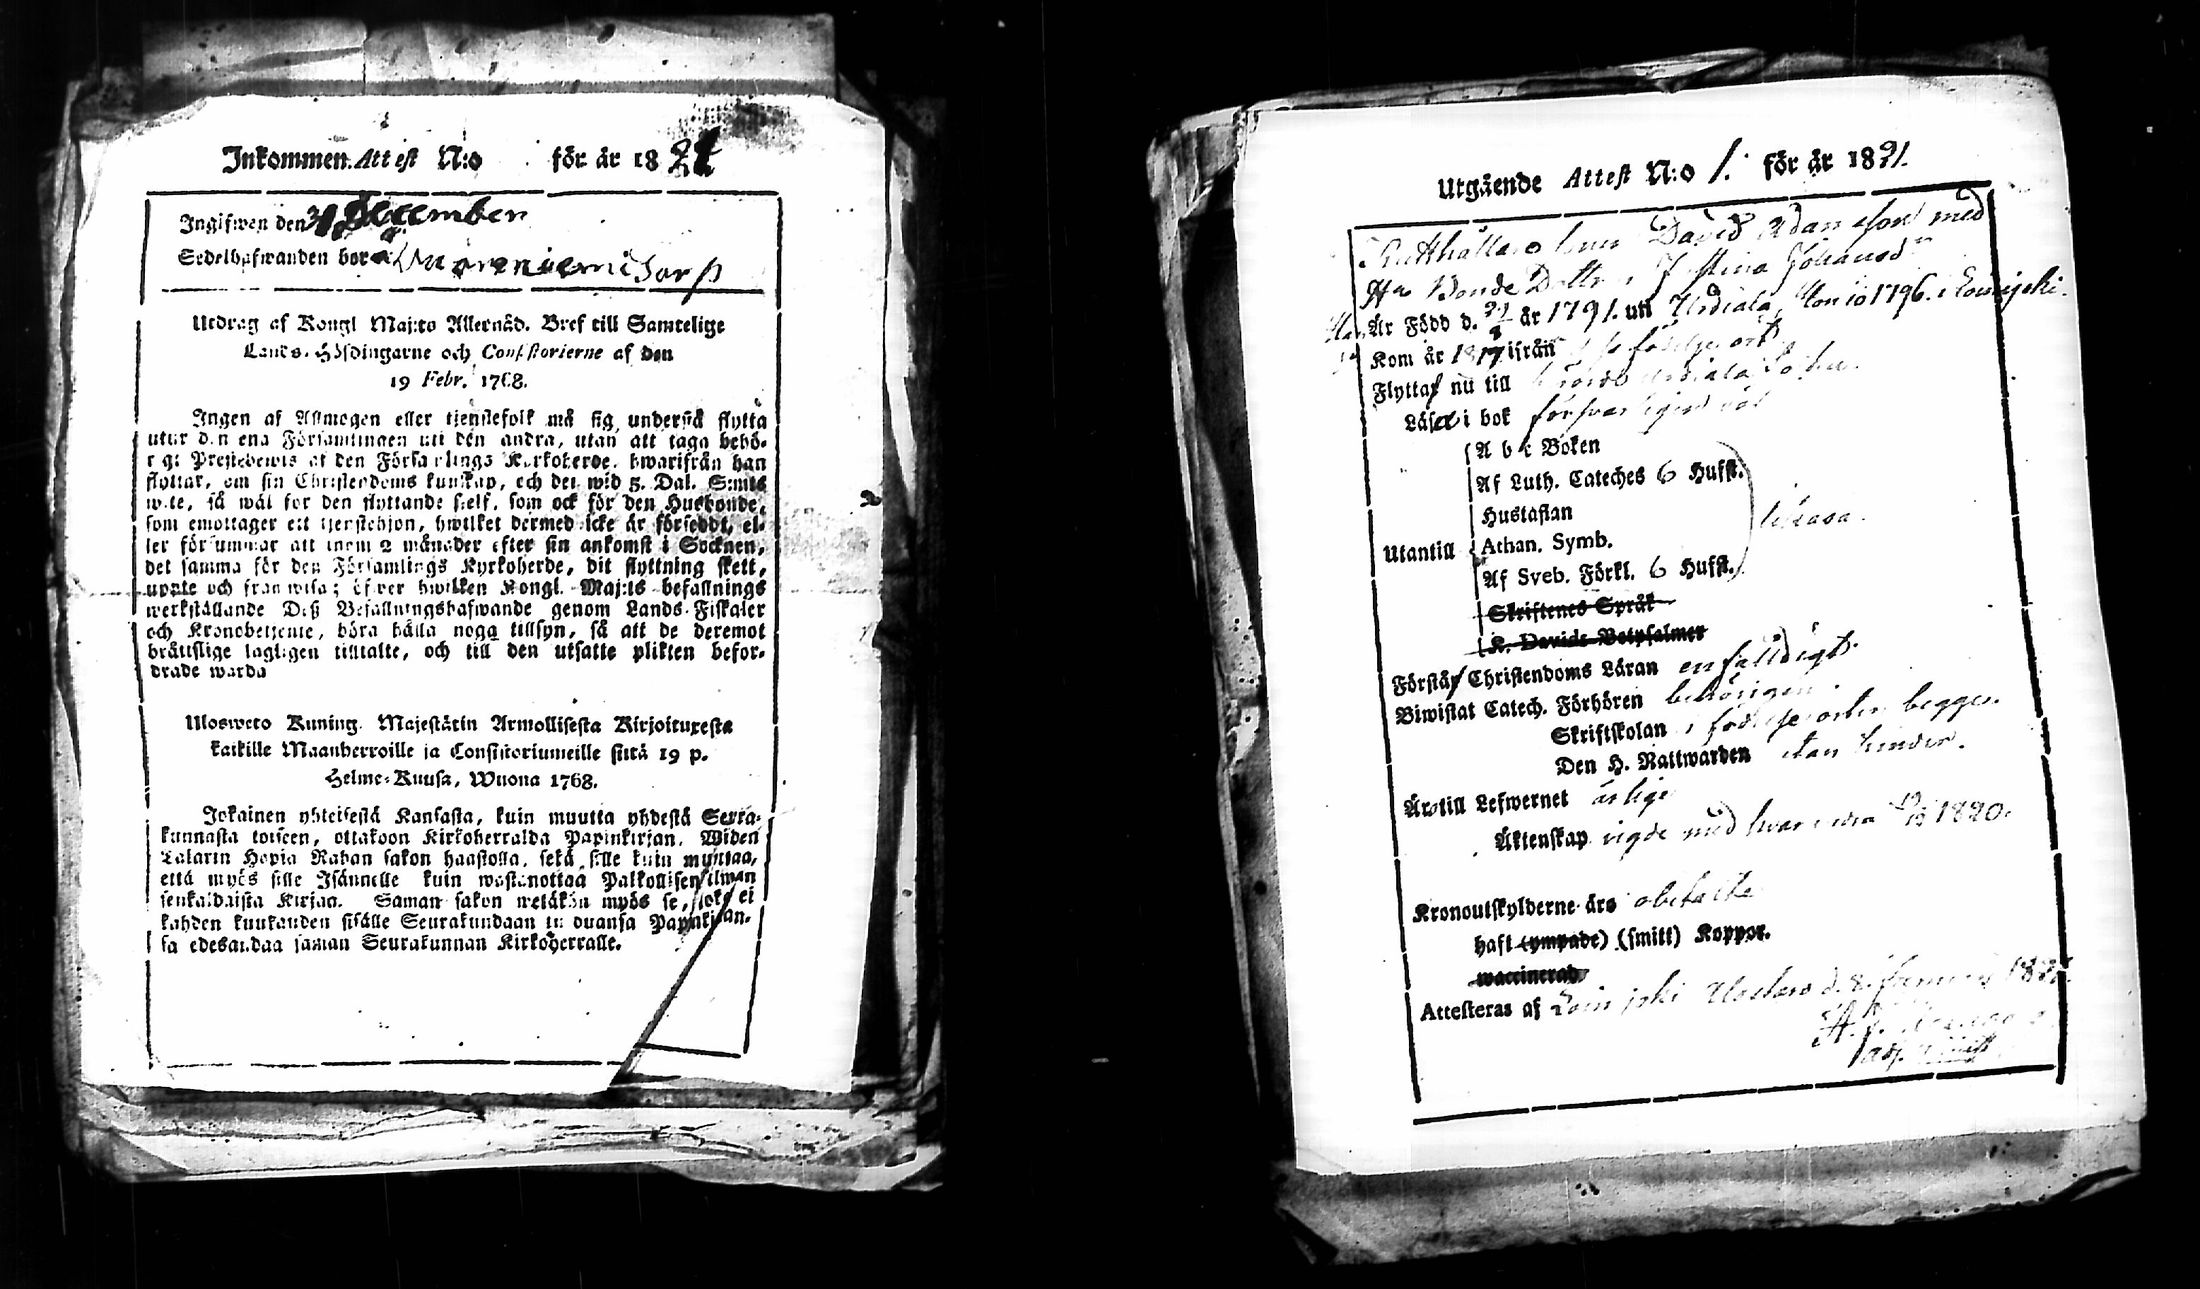 Inkommen Attest N:o för år 18
Ingifwen den 31 December
Sedelhafwanden bor
Utdrag af Kongl Maj:ts Allernåd. Bref till Samtelige
Lands-Höfdingarne och Consistorierne af den
19 Febr. 1768.
Ingen af Allmogen eller tjenstefolk må sig understå flytta
utur den ena Församlingen uti den andra, utan att taga behö-
rigt Prestebewis af den Församlings Kyrkoherde, hwarifrån han
flyttar, om sin Christendoms kunskap, och det wid 5. Dal. S:mts
wite, så wäl för den flyttande sielf, som ock för den Husbonde,
som emottager ett tjenstehjon, hwilket dermed icke är försedt, el-
ler försummar att inom 2 månader efter sin ankomst i Socknen,
det samma för den Församlings Kyrkoherde, dit flyttning skett,
uppte och framwisa; öfwer hwilken Kongl. Maj:ts befallnings
werkställande Deß Befallningshafwande genom Lands-Fiskaler
och Kronobetjente, böra hålla noga tillsyn, så att de deremot
bråttslige lagligen tilltalte, och till den utsatte plikten befor-
drade warda
Uloswето Kuning. Majestätin Armollisesta Kirjoituxesta
kaikille Maanherroille ja Consistoriumeille siitä 19 p.
Helme-Kuusa, Wuona 1768.
Jokainen yhteisestä Kansasta, kuin muutta yhdestä Seura-
kunnasta toiseen, ottakoon Kirkoherralda Papinkirjan, Widen
Talarin Hopia Rahan sakon haastolla, sekä sille kuin muuttaa,
että myös sille Isännelle kuin wastanottaa Palkollisen ilman
senkaldaista Kirjaa. Saman sakon wetäkön myös se, joka ei
kahden kuukauden sisälle Seurakundaan tuloansa Papinkirjan-
sa edesandaa saman Seurakunnan Kirkoherralle.
Utgående Attest N:o 1. för år 1821.
David Adamsson med
Bonde Justina Johansd:r
Är Född d. år 1791. uti Urdiala, hon 1796. i Loimijoki.
Kom år 1817 ifrån födelseort
Flyttar nu till Urdiala
Läsa i bok försvarligen väl
A b c Boken
Af Luth. Cateches 6 Hufst.
Hustaflan
Utantill Athan. Symb.
Af Sveb. Förkl. 6 Hufst.
Skriftenes Språk
K. Davids Botpsalmer
Förstår Christendoms Läran enfaldigt.
Biwistat Catech. Förhören behörigen.
Skriftskolan i födelseorten begge.
Den H. Nattwarden utan hinder.
Äro till Lefwernet ärlige
Äktenskap vigde med hwarandra 1820.
Kronoutskylderne äro obetalte
haft (ympade) (smitt) Koppor.
waccinerad
Attesteras af Loimjoki d. 8. Januari